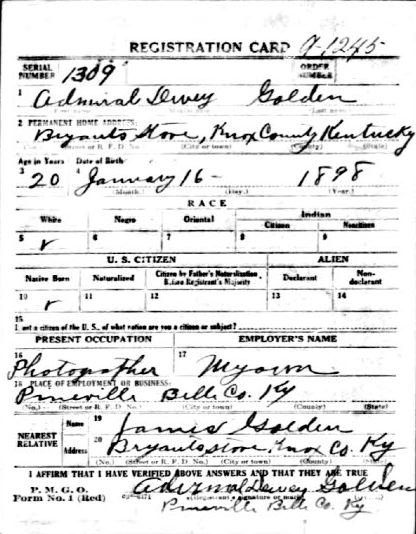 REGISTRATION CARD 9-1245
SERIAL NUMBER 1309 ORDER NUMBER
1 Admiral Dewey Golden
2 PERMANENT HOME ADDRESS:
Bryants Store, Knox County Kentucky
(Street or R. F. D. No.) (City or town) (County) (State)
Age in Years Date of Birth
3 20 4 January 16 - 1898
(Month.) (Day.) (Year.)
RACE
White Negro Oriental Indian
Citizen Noncitizen
5 v 6 7 8 9
U. S. CITIZEN ALIEN
Native Born Naturalized Citizen by Father's Naturalization Before Registrant's Majority Declarant Non-declarant
10 v 11 12 13 14
15
If not a citizen of the U. S., of what nation are you a citizen or subject?
PRESENT OCCUPATION EMPLOYER'S NAME
16 Photopather 17 Myown
18 PLACE OF EMPLOYMENT OR BUSINESS:
Pineville Bell Co. Ky
(No.) (Street or R. F. D. No.) (City or town) (County) (State)
NEAREST RELATIVE Name 19 James Golden
Address 20 Bryants store Knox Co. Ky
(No.) (Street or R. F. D. No.) (City or town) (County) (State)
I AFFIRM THAT I HAVE VERIFIED ABOVE ANSWERS AND THAT THEY ARE TRUE
P. M. G. O.
Form No. 1 (Red) Admiral Dewey Golden
(Registrant's signature or mark)
Pineville Bell Co. Ky